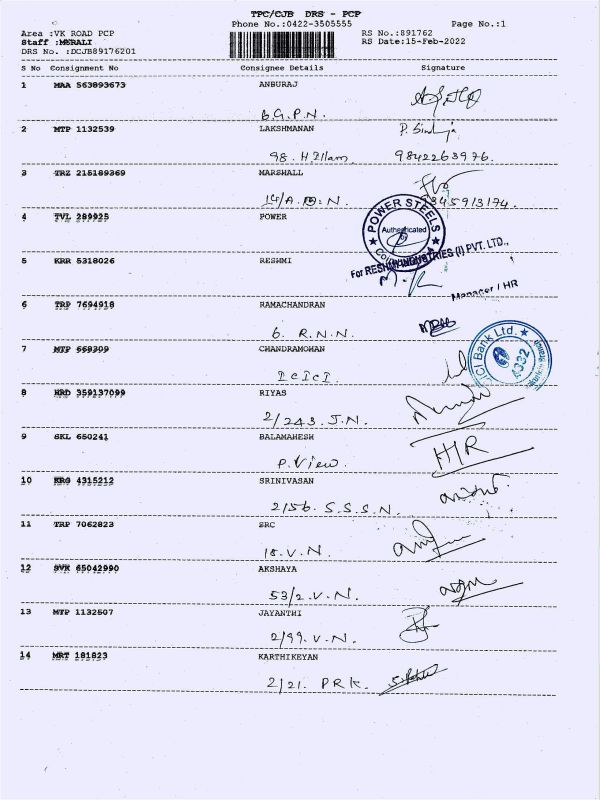 TPC/CJB DRS - PCP
Phone No.:0422-3505555 Page No.:1
Area :VK ROAD PCP RS No.:891762
Staff :MERALI RS Date:15-Feb-2022
DRS No. :DCJB89176201
S No Consignment No Consignee Details Signature
1 MAA 563893673 ANBURAJ
6.G.P.N.
2 MTP 1132539 LAKSHMANAN P. Sinduja
98. H.Illam. 9842263976.
3 TRZ 215189369 MARSHALL
14/A. N. 9345913174.
4 TVL 289925 POWER
POWER STEELS
Authenticated
5 KRR 5318026 RESHMI
For RESHMI INDUSTRIES (I) PVT. LTD.,
Manager / HR
6 TRP 7694918 RAMACHANDRAN
6. R.N.N.
7 MTP 668309 CHANDRAMOHAN
ICICI.
ICICI Bank Ltd.
8 HRD 359137099 RIYAS
2/243. J.N.
9 SKL 650241 BALAMAHESH
P. View. HR
10 KRG 4315212 SRINIVASAN
2/56. S.S.S.N.
11 TRP 7062823 SRC
18.V.N.
12 SVK 65042990 AKSHAYA
53/2.V.N.
13 MTP 1132507 JAYANTHI
2/99.V.N.
14 MRT 181823 KARTHIKEYAN
2/21. PRK.